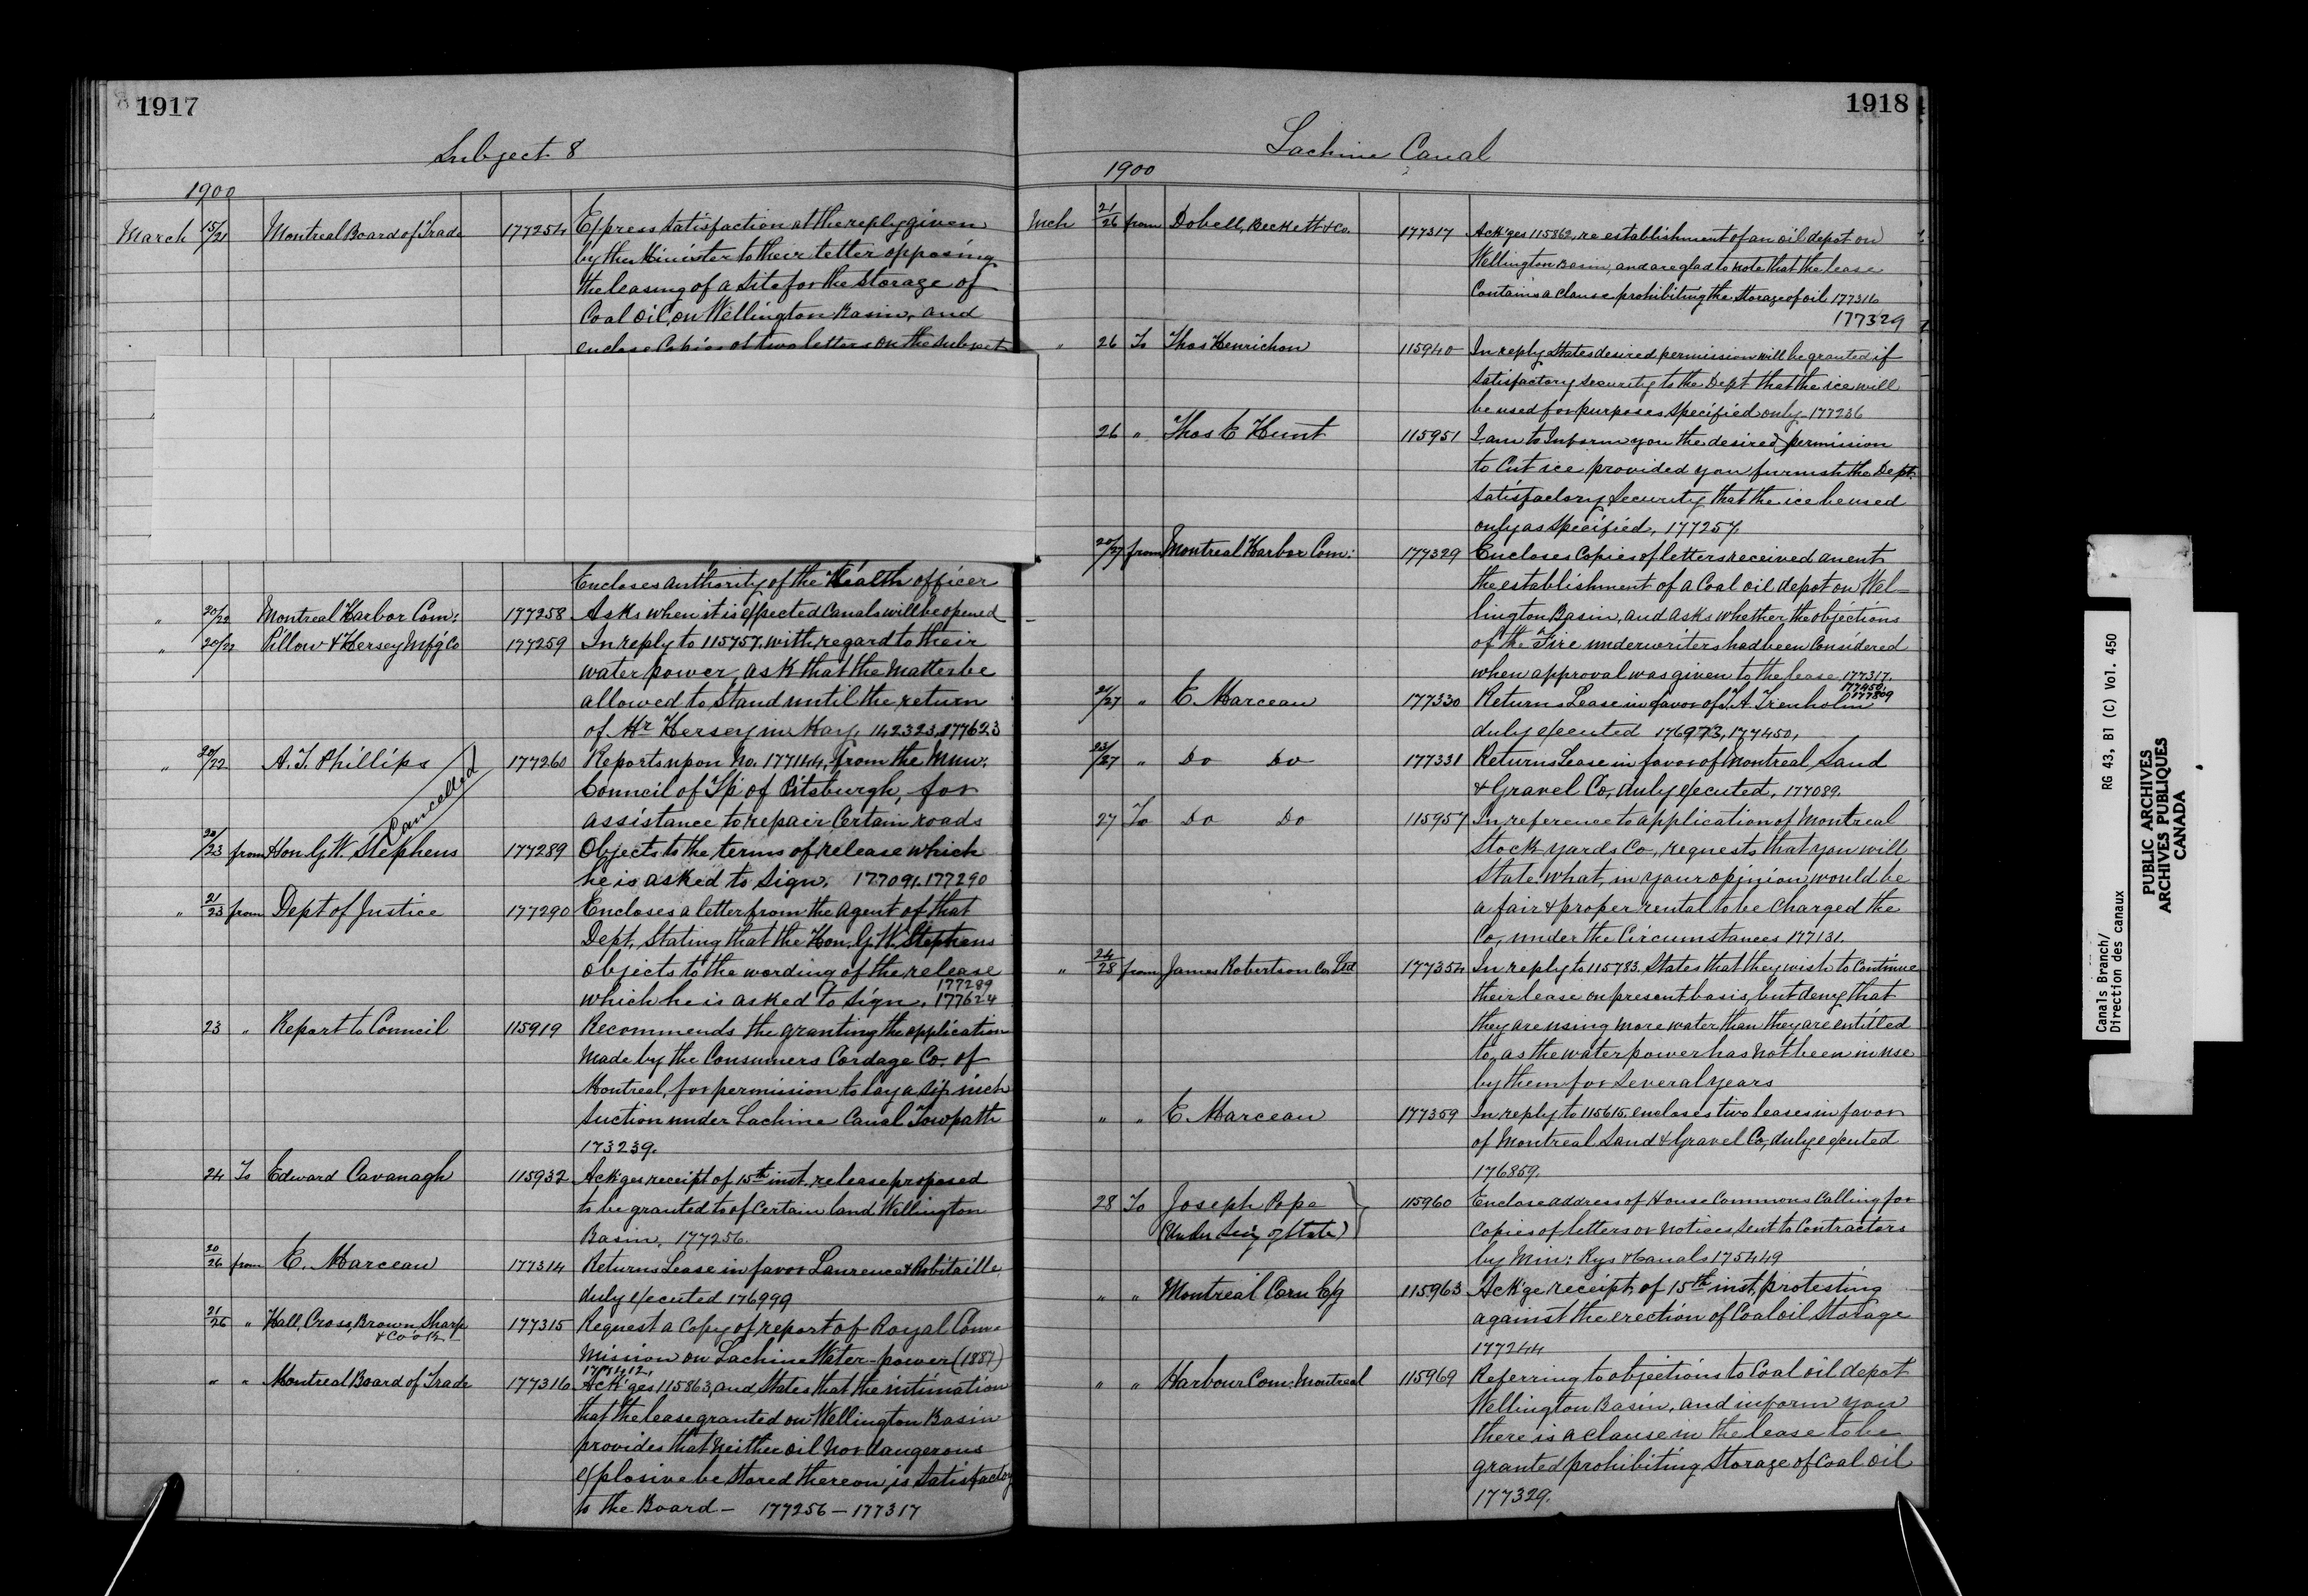 1917
Subject 8
1900
March 15/21 Montreal Board of Trade 177254 Express satisfaction at the reply given
by the Minister to their letter opposing
the leasing of a site for the storage of
Coal oil, on Wellington Basin, and
enclose Copies of two letters on the subject
Encloses authority of the Health officer
" 20/22 Montreal Harbor Com: 177258 Asks when it is expected Canals will be opened
" 20/22 Pillow & Hersey Mf'g Co 177259 In reply to 115757, with regard to their
water power, ask that the matter be
allowed to stand until the return
of Mr Hersey in May. 142323, 177623
" 20/22 A. T. Phillips 177260 Reports upon No. 177144, from the Mun.
Cancelled
Council of T'p of Pitsburgh, for
assistance to repair Certain roads
22/23 from Hon. G. W. Stephens 177289 Objects to the terms of release which
he is asked to sign. 177091. 177290
" 21/23 from Dept of Justice 177290 Encloses a letter from the agent of that
Dept, stating that the Hon. G. W. Stephens
objects to the wording of the release
177289
which he is asked to sign. 177624
23 " Report to Council 115919 Recommends the granting the application
made by the Consumers Cordage Co. of
Montreal, for permission to lay a six inch
suction under Lachine Canal Towpath
173239.
24 To Edward Cavanagh 115932 Ack'ges receipt of 15th inst, release proposed
to be granted to of Certain land Wellington
Basin. 177256.
20/26 from E. Marceau 177314 Returns Lease in favor Laurence & Robitaille
duly executed 176999
21/26 " Hall, Cross, Brown, Sharp
& Cook 177315 Request a Copy of report of Royal Com-
mission on Lachine Water-power (1887)
177412.
" " Montreal Board of Trade 177316 Ack'ges 115863, and states that the intimation
that the lease granted on Wellington Basin
provides that neither oil nor dangerous
explosive be stored thereon, is satisfactory
to the Board — 177256 — 177317
1918
Lachine Canal
1900
Mch 21/26 from Dobell, Beckett & Co. 177317 Ack'ges 115862, re establishment of an oil depot on
Wellington Basin, and are glad to note that the lease
Contains a clause prohibiting the storage of oil 177316
177329
" 26 To Thos Henrichon 115940 In reply states desired permission will be granted if
satisfactory security to the Dept that the ice will
be used for purposes specified only. 177236
26 " Thos E Hunt 115951 I am to Inform you the desired permission
to Cut ice provided you furnish the Dept.
satisfactory security that the ice be used
only as specified. 177257.
20/27 from Montreal Harbor Com: 177329 Encloses Copies of letters received anent
the establishment of a Coal oil depot on Wel-
lington Basin, and asks whether the objections
of the Fire underwriters had been Considered
when approval was given to the lease 177317.
177450.
177809
21/27 " E. Marceau 177330 Returns Lease in favor of T. A. Trenholm
duly executed 176973, 177450,
23/27 " Do Do 177331 Returns Lease in favor of Montreal Sand
& Gravel Co, duly executed, 177089.
27 To Do Do 115957 In reference to application of Montreal
Stock yards Co, requests that you will
state what, in your opinion would be
a fair & proper rental to be Charged the
Co, under the Circumstances 177131.
" 24/28 from James Robertson Co Ltd 177354 In reply to 115783. States that they wish to Continue
their lease on present basis, but deny that
they are using more water than they are entitled
to, as the water power has not been in use
by them for several years
" " E. Marceau 177359 In reply to 115615, encloses two leases in favor
of Montreal Sand & Gravel Co, duly executed
176859.
28 To Joseph Pope 115960 Enclose address of House Commons Calling for
(Under Sec'y of State) Copies of letters or notices, sent to Contractors
by Min: Rys & Canals 175449
" " Montreal Corn Ex'g 115963 Ack'ge receipt, of 15th inst, protesting
against the erection of Coal oil storage
177244
" " Harbour Com. Montreal 115969 Referring to objections to Coal oil depot
Wellington Basin, and inform you
there is a clause in the lease to be
granted prohibiting storage of Coal oil
177329.
Canals Branch/ RG 43, B1 (C) Vol. 450
Direction des canaux
PUBLIC ARCHIVES
ARCHIVES PUBLIQUES
CANADA